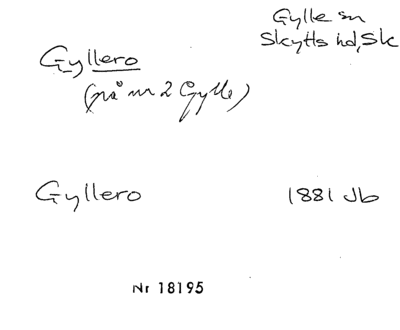 Gylle sn
Skytts hd, Sk
Gyllero
(på nr 2 Gylle)
Gyllero 1881 Jb
Nr 18195